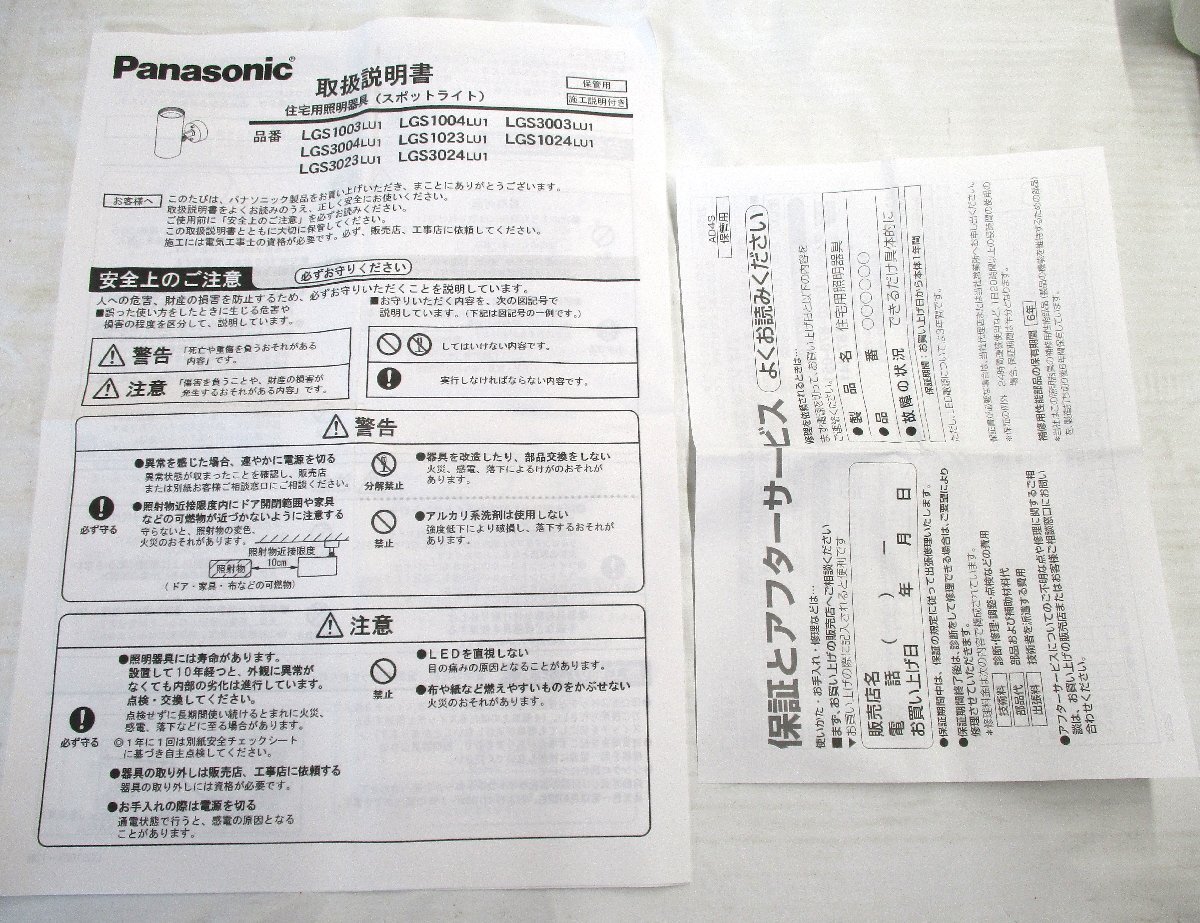 Panasonic
取扱説明書
保管用
住宅用照明器具（スポットライト）
施工説明付き
品番
LGS1003LU1 LGS1004LU1 LGS3003LU1
LGS3004LU1 LGS1023LU1 LGS1024LU1
LGS3023LU1 LGS3024LU1
お客様へ
このたびは、パナソニック製品をお買い上げいただき、まことにありがとうございます。
取扱説明書をよくお読みのうえ、正しく安全にお使いください。
ご使用前に「安全上のご注意」を必ずお読みください。
この取扱説明書とともに大切に保管してください。
施工には電気工事士の資格が必要です。必ず、販売店、工事店に依頼してください。
安全上のご注意
必ずお守りください
人への危害、財産の損害を防止するため、必ずお守りいただくことを説明しています。
■誤った使い方をしたときに生じる危害や
損害の程度を区分して、説明しています。
警告
「死亡や重傷を負うおそれがある
内容」です。
注意
「傷害を負うことや、財産の損害が
発生するおそれがある内容」です。
■お守りいただく内容を、次の図記号で
説明しています。（下記は図記号の一例です。）
してはいけない内容です。
実行しなければならない内容です。
警告
必ず守る
●異常を感じた場合、速やかに電源を切る
異常状態が収まったことを確認し、販売店
または別紙お客様ご相談窓口にご相談ください。
●照射物近接限度内にドア開閉範囲や家具
などの可燃物が近づかないように注意する
守らないと、照射物の変色、
火災のおそれがあります。
照射物近接限度
照射物
10cm
（ドア・家具・布などの可燃物）
分解禁止
●器具を改造したり、部品交換をしない
火災、感電、落下によるけがのおそれが
あります。
禁止
●アルカリ系洗剤は使用しない
強度低下により破損し、落下するおそれが
あります。
注意
必ず守る
●照明器具には寿命があります。
設置して10年経つと、外観に異常が
なくても内部の劣化は進行しています。
点検・交換してください。
点検せずに長期間使い続けるとまれに火災、
感電、落下などに至る場合があります。
◎1年に1回は別紙安全チェックシート
に基づき自主点検してください。
●器具の取り外しは販売店、工事店に依頼する
器具の取り外しには資格が必要です。
●お手入れの際は電源を切る
通電状態で行うと、感電の原因となる
ことがあります。
禁止
●LEDを直視しない
目の痛みの原因となることがあります。
●布や紙など燃えやすいものをかぶせない
火災のおそれがあります。
AD4S
保管用
保証とアフターサービス
よくお読みください
使いかた・お手入れ・修理などは…
■まず、お買い上げの販売店へご相談ください
▼お買い上げの際に記入されると便利です
販売店名
電話（ ） ー
お買い上げ日 年 月 日
修理を依頼されるときは…
まず電源を切って、お買い上げ日と以下の内容を
ご連絡ください。
●製品名 住宅用照明器具
●品番 ○○○○○
●故障の状況 できるだけ具体的に
保証期間：お買い上げ日から本体1年間
●保証期間中は、保証の規定に従って出張修理いたします。
●保証期間終了後は、診断をして修理できる場合は、ご要望により
修理させていただきます。
＊修理料金は次の内容で構成されています。
技術料 診断・修理・調整・点検などの費用
部品代 部品および補助材料代
出張料 技術者を派遣する費用
補修用性能部品の保有期間 6年
●アフターサービスについてのご不明な点や修理に関するご相
談は、お買い上げの販売店またはお客様ご相談窓口にお問い
合わせください。